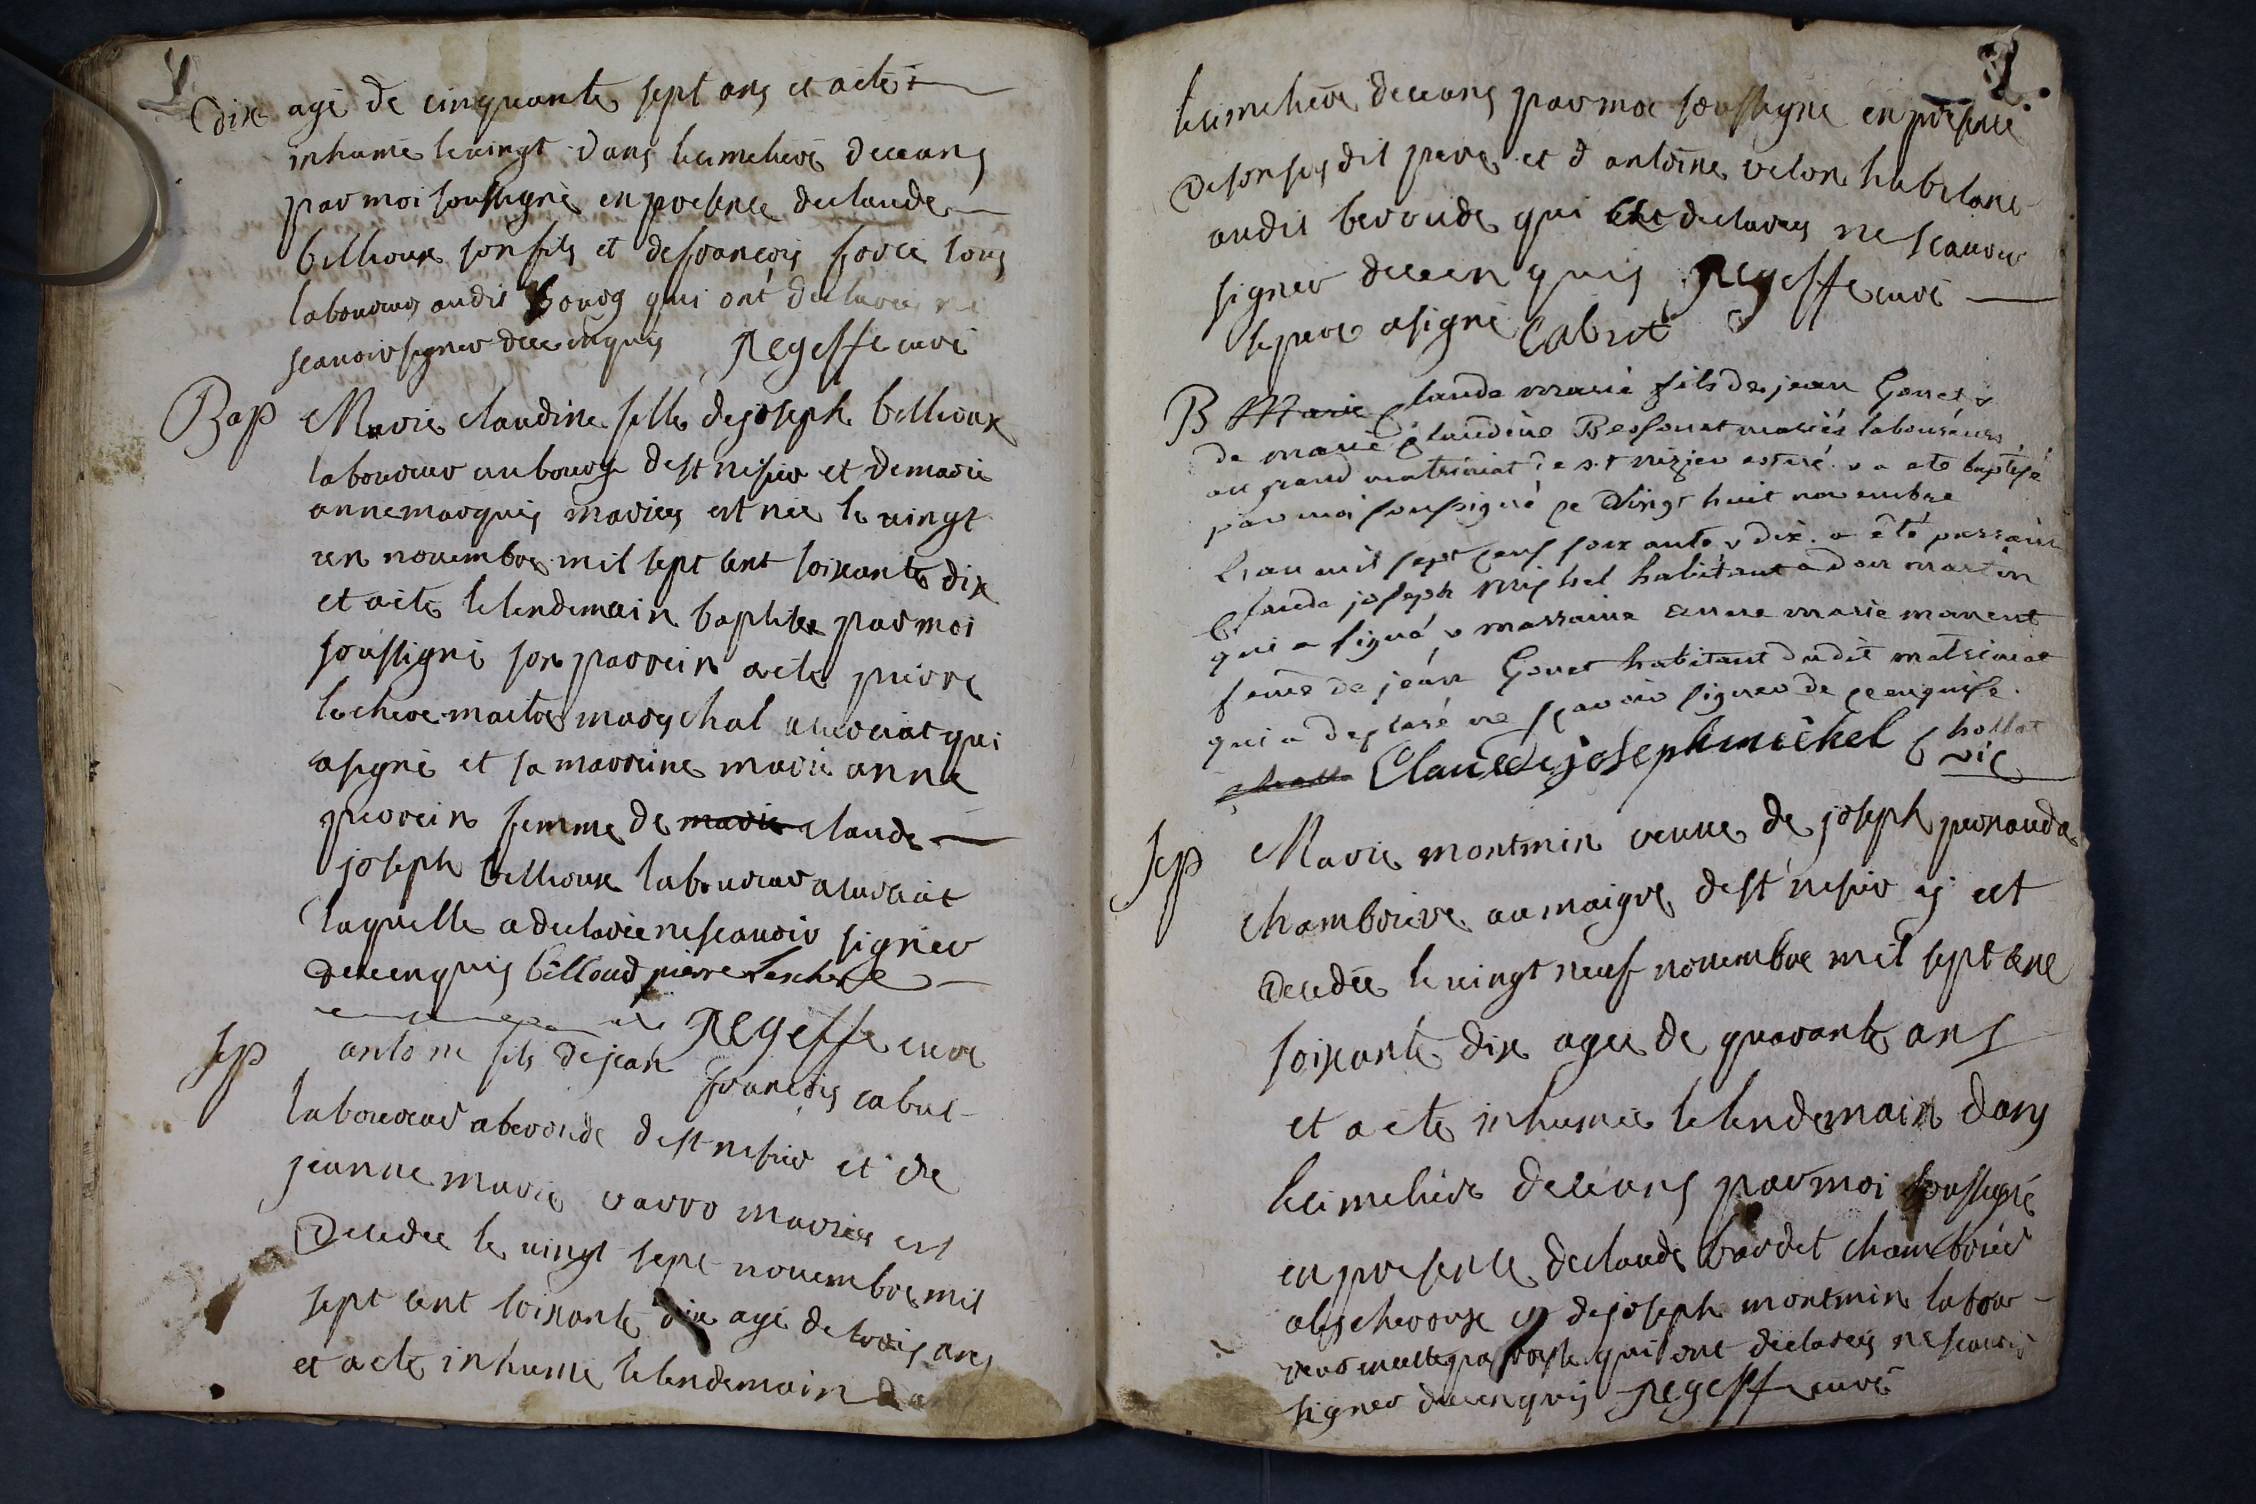 dix agé de cinquante sept ans et a été
inhumé le vingt dans le cimetiere de ceans
par moi soussigné en presence de claude
billioux son fils et de françois force tous
laboureurs audit bourg qui ont declarez ne
scauoir signer de ce enquis regeffe curé
Bap Marie claudine fille de joseph billioux
laboureur au bourg de st nisier et de marie
anne marquis mariés est née le vingt
un nouembre mil sept cent soixante dix
et a été le lendemain baptisée par moi
soussigné son parrein a été pierre
lechere maitre maréchal a curciat qui
a signé et sa marreine marie anne
perrein femme de marie claude
joseph billioux laboureur a curciat
laquelle a declarée ne scauoir signer
de ce enquis billoud pierre lechere
regeffe curé
sep antoine fils de jean françois cabut
laboureur a beronde de st nisier et de
jeanne marie varro mariés est
decedée le vingt sept nouembre mil
sept cent soixante dix agé de trois ans
et a été inhumé le lendemain dans
2.
le cimetiere de ceans par moi soussigné en presence
de son susdit pere et d antoine velon habitans
audit beronde qui ont declarez ne scauoir
signer de ce enquis regeffe curé
le pere a signé Cabut
B Marie Claude marie fils de jean Gonet &
de marie Claudine Besonat mariés laboureurs
au grand matriniat de st nizier est né & a été baptisé
par moi soussigné ce vingt huit novembre
l'an mil sept cent soixante & dix. a été parrain
Claude joseph michel habitant a dom martin
qui a signé, & marraine anne marie manent
femme de jean Gonet habitant dudit matriniat
qui a declaré ne scavoir signer de ce enquise.
Claude joseph michel Chollat
vic
sep Marie montmin veuue de joseph perraud
chambriere au maigre de st nisier est
decedée le vingt neuf nouembre mil sept cent
soixante dix agée de quarante ans
et a été inhumée le lendemain dans
le cimetiere de ceans par moi soussigné
en presence de claude bardet chambrier
aus cheroux et de joseph montmin labou-
reur en cette paroisse qui ont declarés ne scauoir
signer de ce enquis regeffe curé